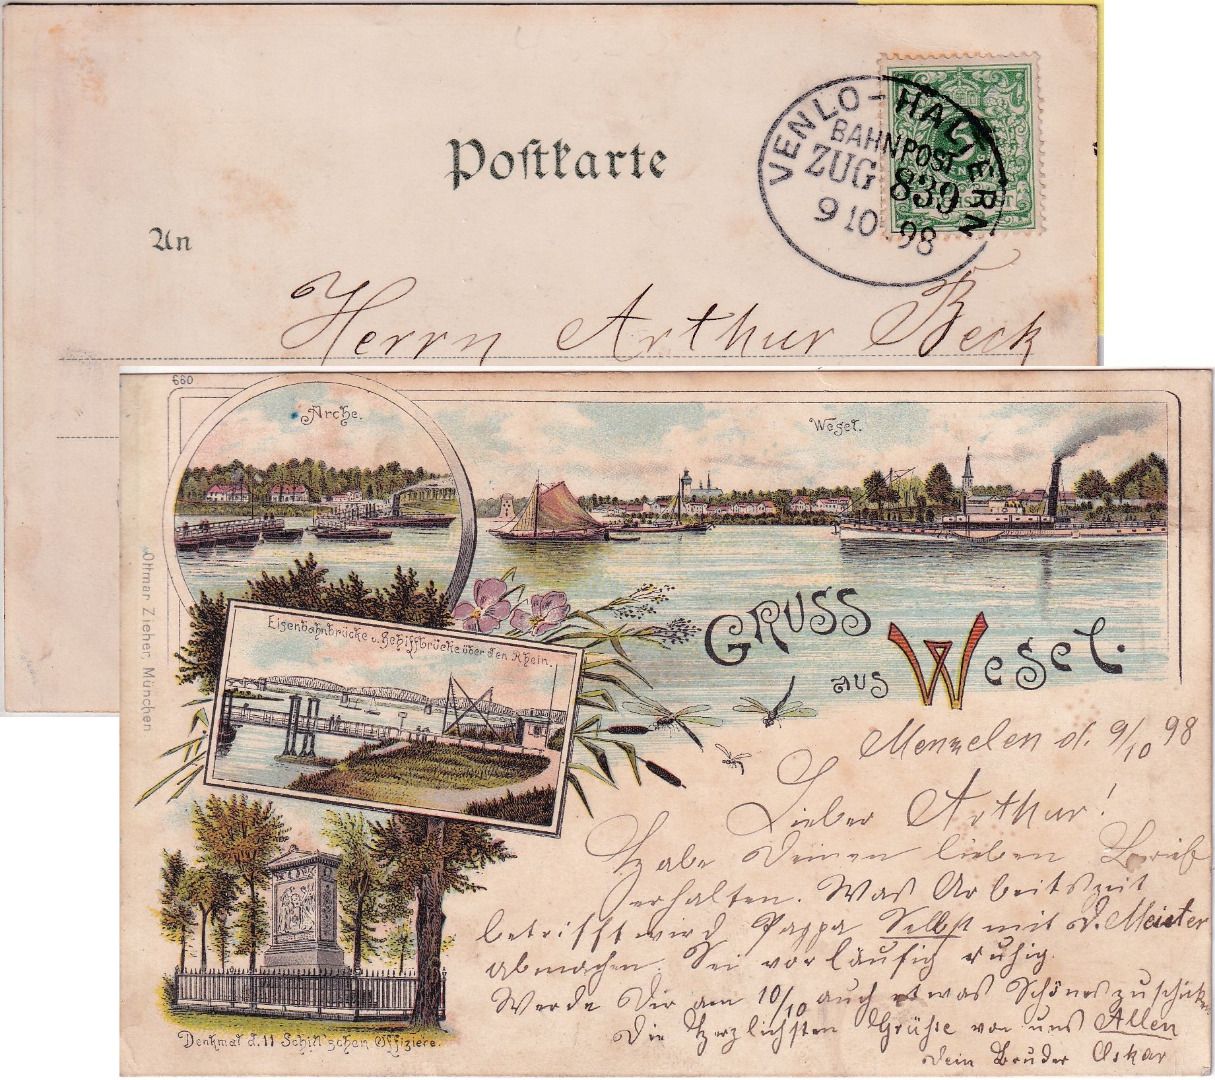 Postkarte
VENLO-HALTERN
BAHNPOST
ZUG 839
9 10 98
An
Herrn Arthur Beck
660
Arche.
Wesel.
Ottmar Zieher, München
Eisenbahnbrücke u. Schiffbrücke über den Rhein.
GRUSS
aus Wesel.
Menzelen d. 9/10 98
Lieber Arthur!
Habe Deinen lieben Brief
erhalten. Was Arbeitszeit
betrifft wird Pappa Selbst mit d. Meister
abmachen. Sei vorläufig ruhig.
Werde Dir am 10/10 auch etwas Schönes zu schicken
Die herzlichsten Grüße von uns Allen
Dein Bruder Oskar
Denkmal d. 11 Schill'schen Offiziere.